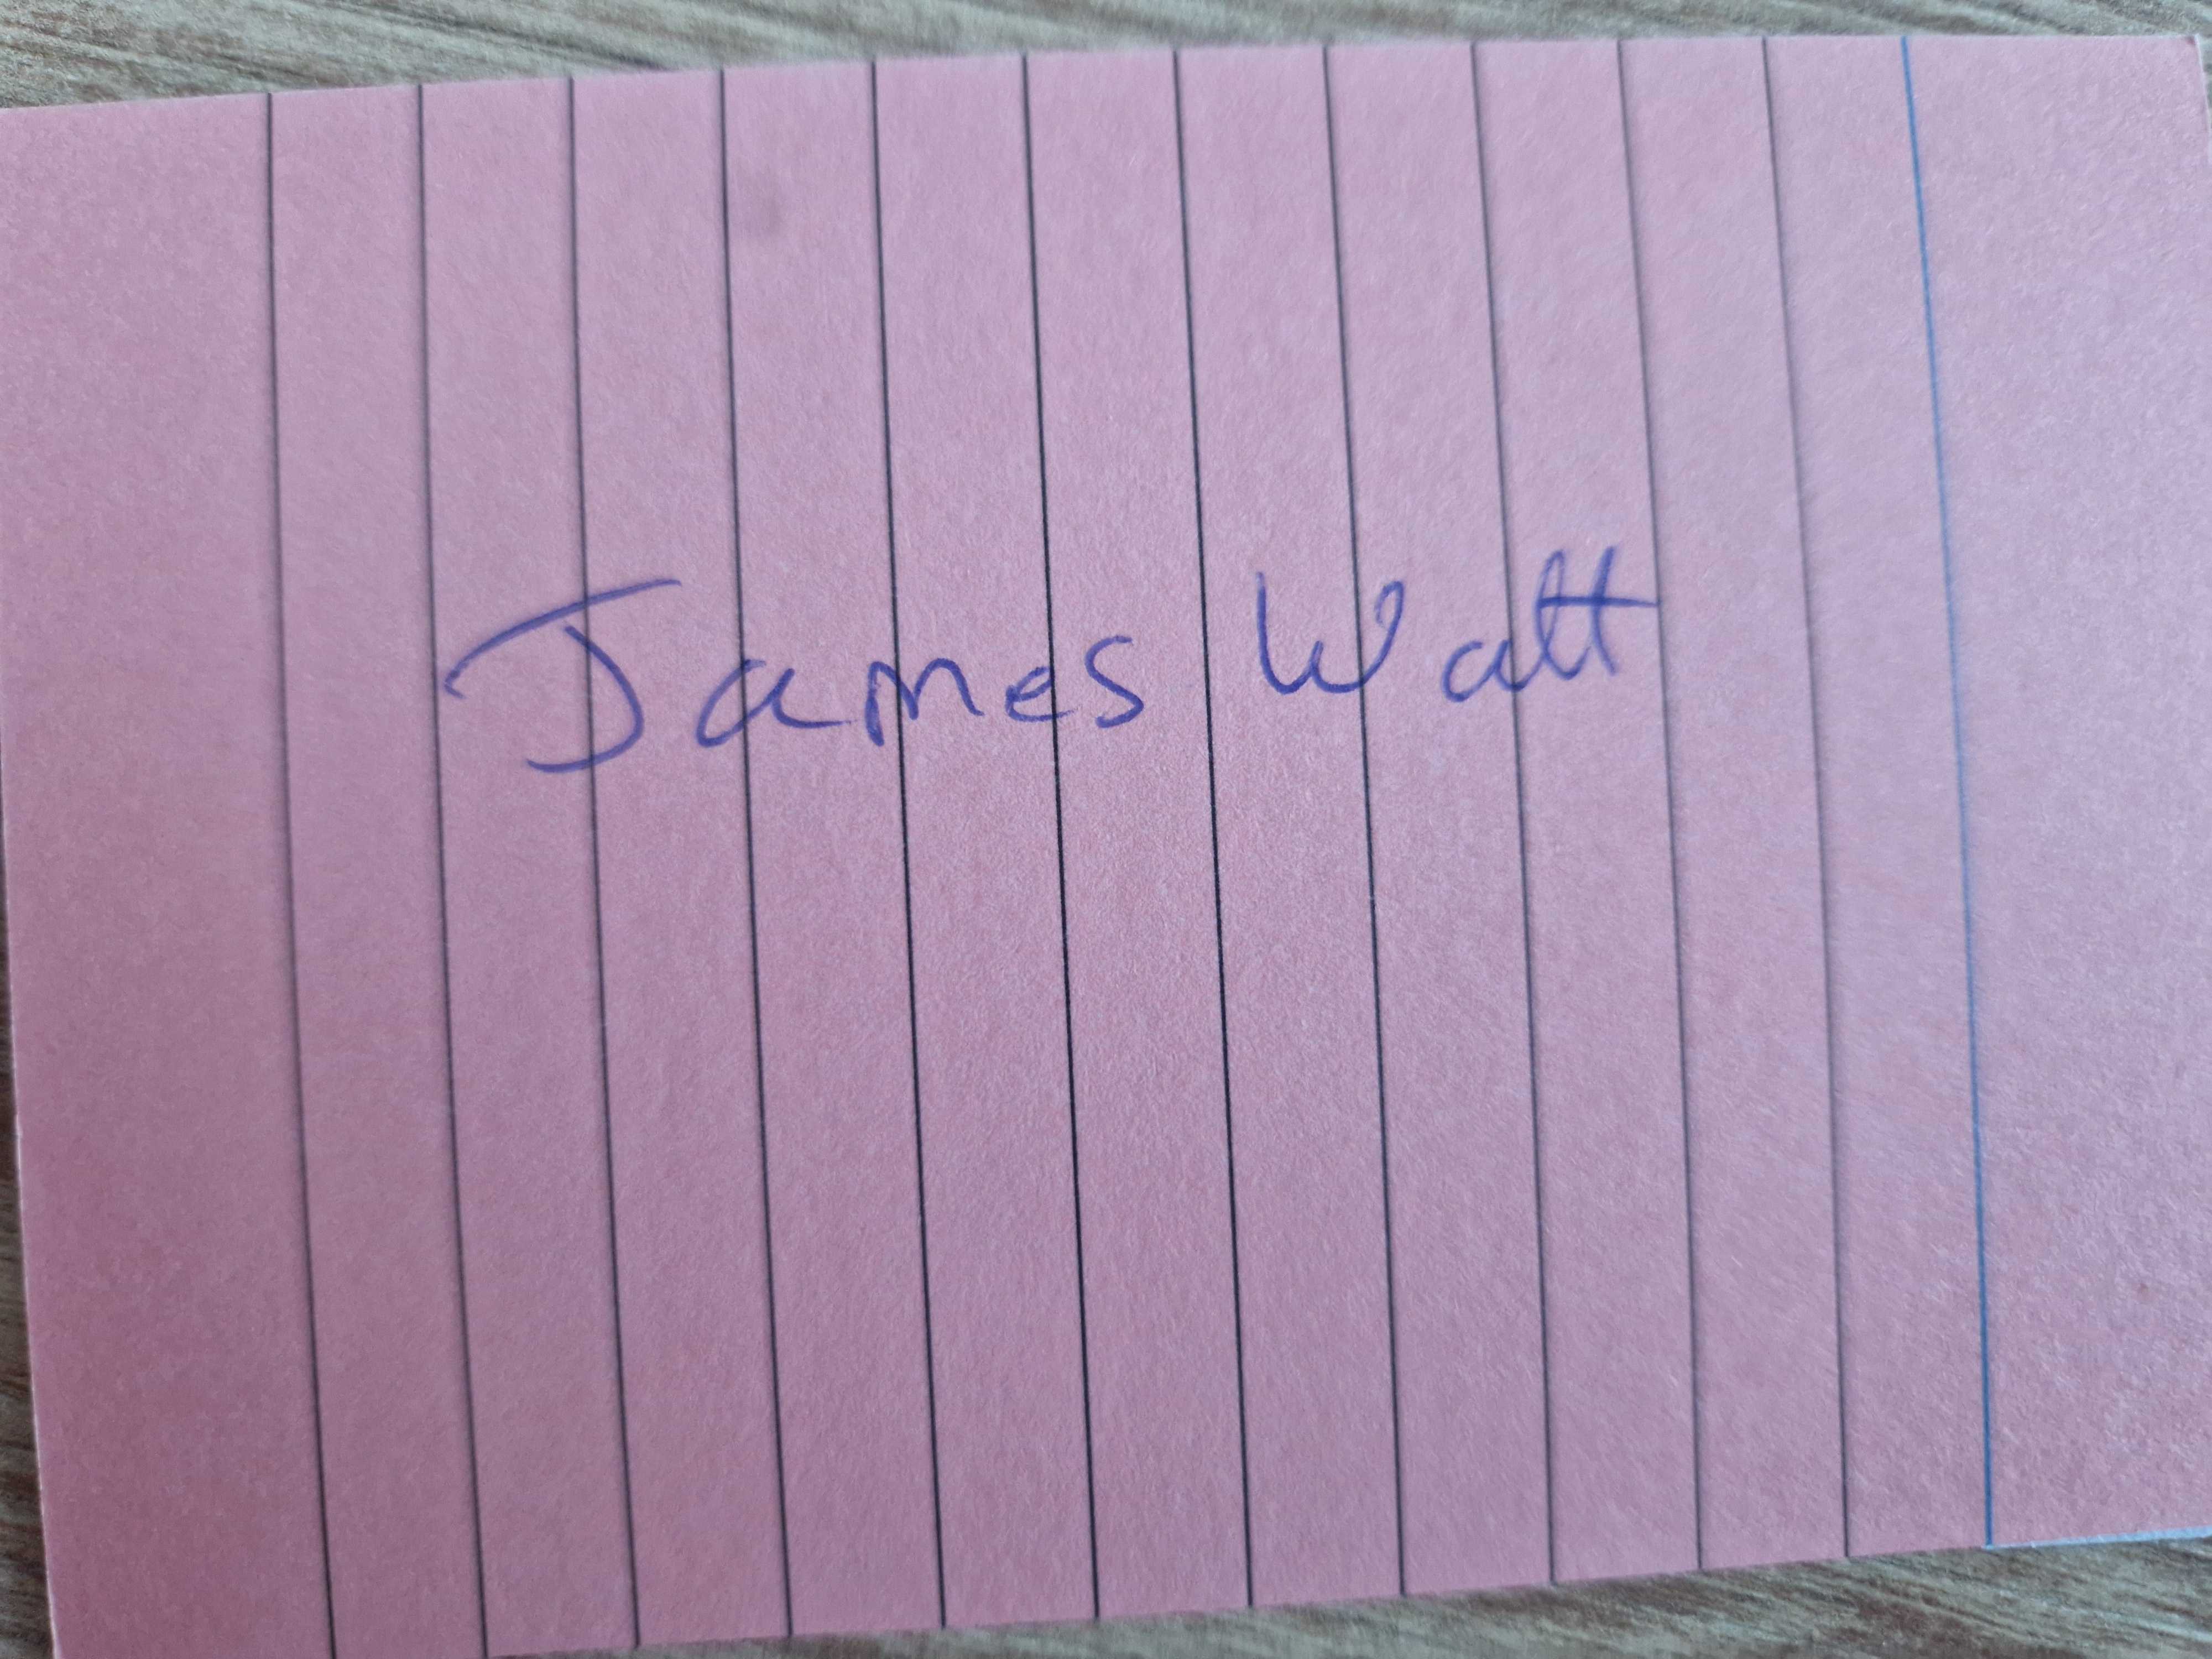 James Watt